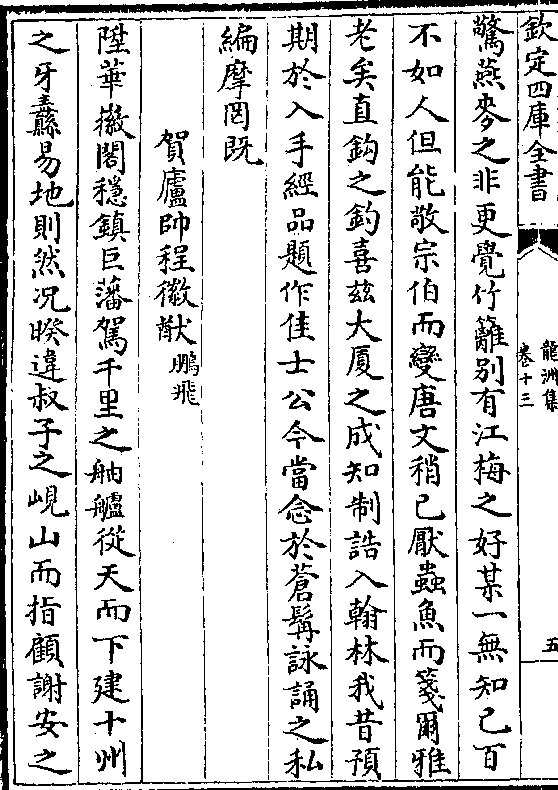 欽定四庫全書
龍洲集
卷十三
五
驚燕麥之非更覺竹籬別有江梅之好某一無知己百
不如人但能敬宗伯而變唐文稍已厭蟲魚而箋爾雅
老矣直鈎之釣喜兹大厦之成知制誥入翰林我昔預
期於入手經品題作佳士公今當念於蒼髯詠誦之私
編摩罔既
賀廬帥程徽猷鵬飛
陞華徽閣穩鎮巨藩駕千里之舳艫從天而下建十州
之牙纛易地則然况暌違叔子之峴山而指顧謝安之